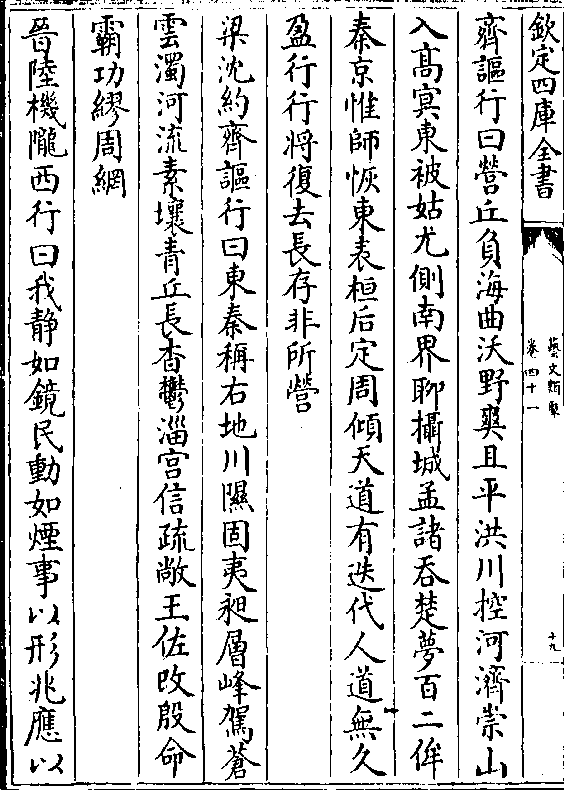 欽定四庫全書
藝文類聚
卷四十一
十九
齊謳行曰營丘負海曲沃野爽且平洪川控河濟崇山
入髙㝠東被姑尤側南界聊攝城孟諸吞楚夢百二侔
秦京惟師恢東表桓后定周傾天道有迭代人道無久
盈行行將復去長存非所營
梁沈約齊謳行曰東秦稱右地川隰固夷昶層峰駕蒼
雲濁河流素壤青丘長杳鬱淄宫信疏敞王佐改殷命
霸功繆周網
晉陸機隴西行曰我靜如鏡民動如煙事以形兆應以